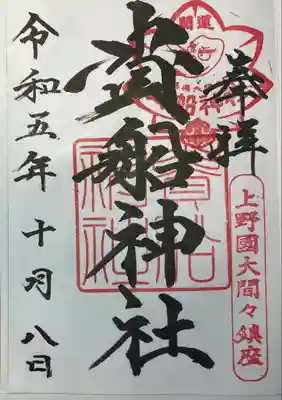 奉拝
開運
上野國大間々鎮座
貴船神社
貴船神社
令和五年十月八日